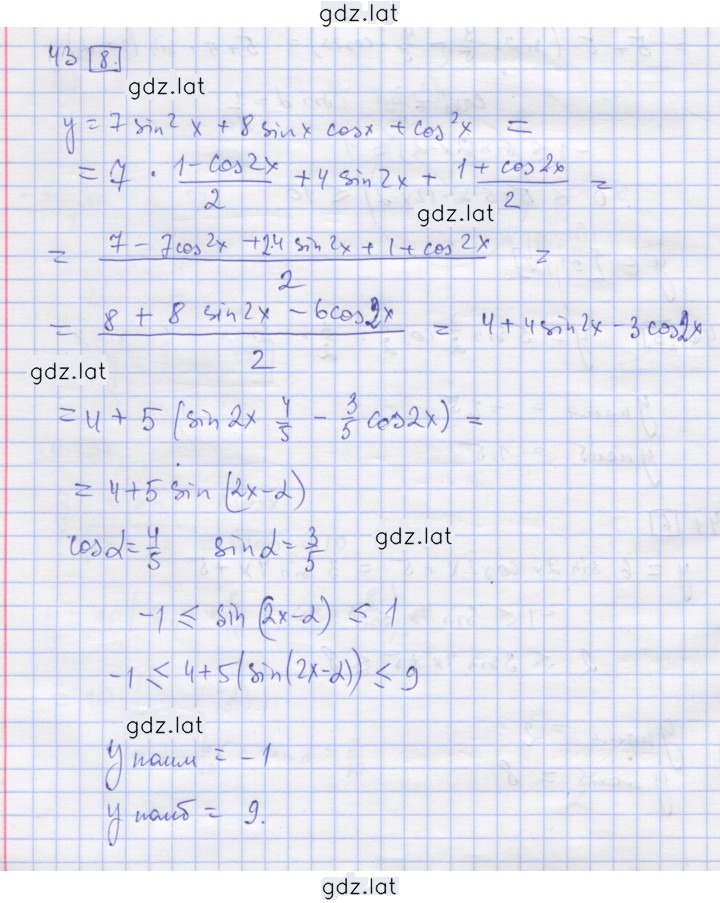 gdz.lat
43 8.
gdz.lat
y = 7 sin² x + 8 sin x cos x + cos² x =
= 7 · (1 - cos 2x)/2 + 4 sin 2x + (1 + cos 2x)/2 =
gdz.lat
= (7 - 7 cos 2x + 2·4 sin 2x + 1 + cos 2x)/2 =
= (8 + 8 sin 2x - 6 cos 2x)/2 = 4 + 4 sin 2x - 3 cos 2x
gdz.lat
= 4 + 5 (sin 2x 4/5 - 3/5 cos 2x) =
= 4 + 5 sin (2x - α)
cos α = 4/5 sin α = 3/5
gdz.lat
-1 ≤ sin (2x - α) ≤ 1
-1 ≤ 4 + 5 (sin (2x - α)) ≤ 9
gdz.lat
y наим = -1
y наиб = 9.
gdz.lat